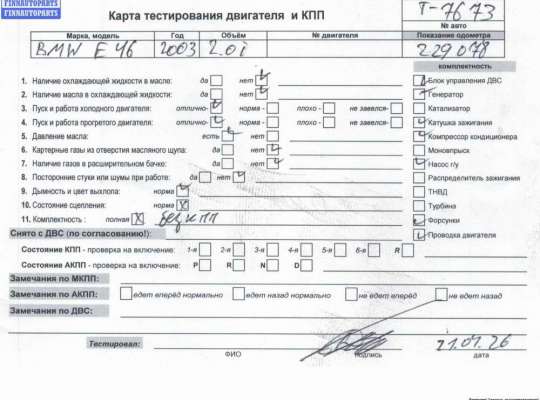 FINNAUTOPARTS
FINNAUTOPARTS
Карта тестирования двигателя и КПП
Т-7673
№ авто
Марка, модель Год Объём № двигателя Показание одометра
BMW E46 2003 2.0i 229078
комплектность
1. Наличие охлаждающей жидкости в масле: да нет Блок управления ДВС
2. Наличие масла в охлаждающей жидкости: да нет Генератор
3. Пуск и работа холодного двигателя: отлично- норма - плохо - не завелся- Катализатор
4. Пуск и работа прогретого двигателя: отлично- норма - плохо - не завелся- Катушка зажигания
5. Давление масла: есть нет Компрессор кондиционера
6. Картерные газы из отверстия масляного щупа: да нет Моновпрыск
7. Наличие газов в расширительном бачке: да нет Насос г/у
8. Посторонние стуки или шумы при работе: да нет Распределитель зажигания
9. Дымность и цвет выхлопа: норма ТНВД
10. Состояние сцепления: норма Турбина
11. Комплектность : полная без кпп Форсунки
Снято с ДВС (по согласованию!): Проводка двигателя
Состояние КПП - проверка на включение: 1-я 2-я 3-я 4-я 5-я 6-я R
Состояние АКПП - проверка на включение: P R N D
Замечания по МКПП:
Замечания по АКПП: едет вперёд нормально едет назад нормально не едет вперёд не едет назад
Замечания по ДВС:
Тестировал: 21.01.26
ФИО подпись дата